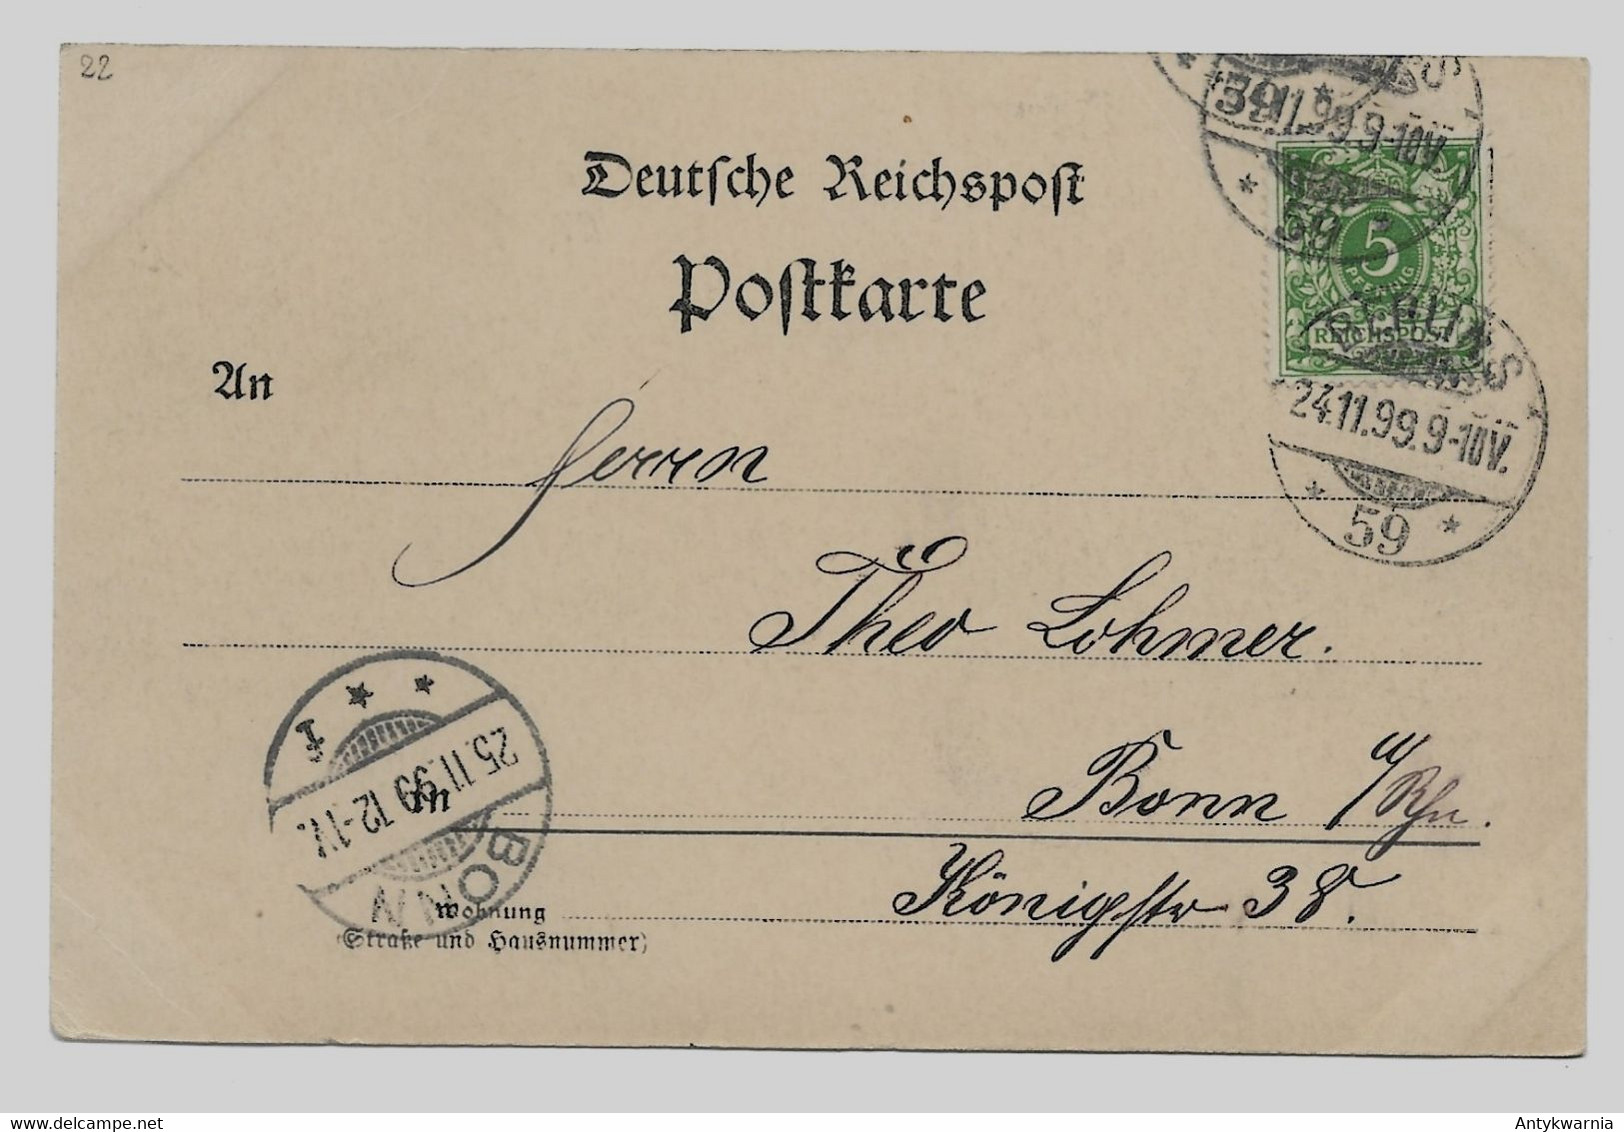 22
Deutsche Reichspost
Postkarte
An
Herrn
Theo Lohmer.
Bonn a/Rhn.
in
Königstr 38.
Wohnung
(Straße und Hausnummer)
5
PFENNIG
REICHSPOST
BERLIN S
24.11.99.9-10V.
59
24.11.99.9-10V.
59
59
BONN
25.11.99 12-1V.
f
Antykwarnia